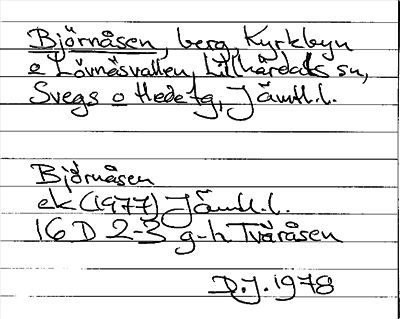 Björnåsen, berg, Kyrkbyn
e Lövnäsvallen, Lillhärdals sn,
Svegs o Hede tg, Jämtl.l.
Björnåsen
ek (1977) Jämtl.l.
16 D 2-3 g-h Tväråsen
D.J. 1978